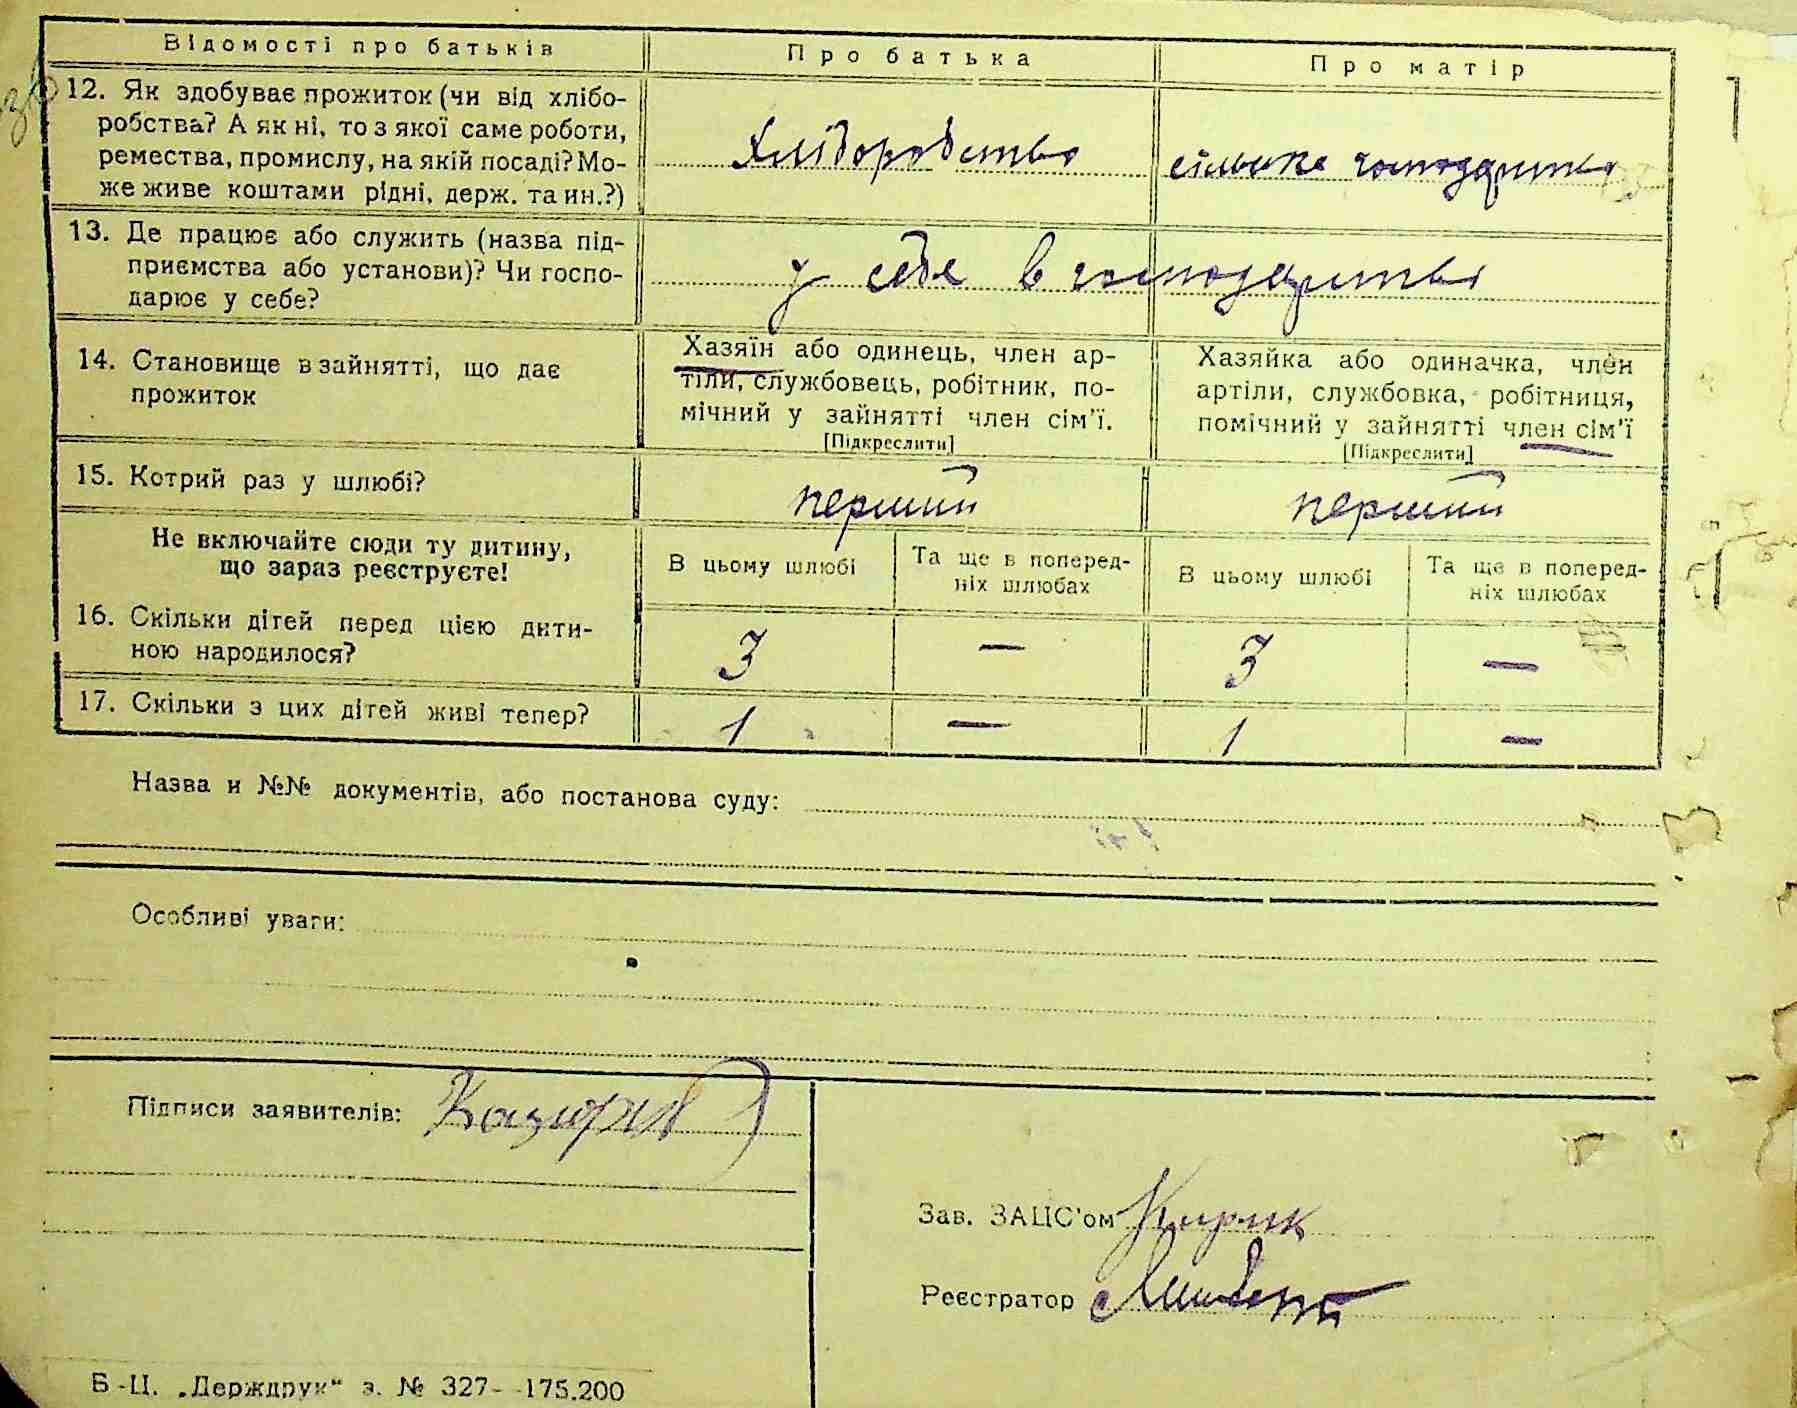 Відомості про батьків Про батька Про матір
12. Як здобуває прожиток (чи від хлібо-
робства? А як ні, то з якої саме роботи,
ремества, промислу, на якій посаді? Мо-
же живе коштами рідні, держ. та ин.?)
хліборобство сільське господарство
13. Де працює або служить (назва під-
приємства або установи)? Чи госпо-
дарює у себе?
у себе в господарстві
14. Становище в зайнятті, що дає
прожиток
Хазяїн або одинець, член ар-
тіли, службовець, робітник, по-
мічний у зайнятті член сім'ї.
[Підкреслити]
Хазяйка або одиначка, член
артіли, службовка, робітниця,
помічний у зайнятті член сім'ї
[Підкреслити]
15. Котрий раз у шлюбі? перший перший
Не включайте сюди ту дитину,
що зараз реєструєте!
В цьому шлюбі Та ще в поперед-
ніх шлюбах В цьому шлюбі Та ще в поперед-
ніх шлюбах
16. Скільки дітей перед цією дити-
ною народилося?
3 — 3 —
17. Скільки з цих дітей живі тепер? 1 — 1 —
Назва и №№ документів, або постанова суду:
Особливі уваги:
Підписи заявителів:
Зав. ЗАЦС'ом
Реєстратор
Б-Ц. „Держдрук" з. № 327- -175.200